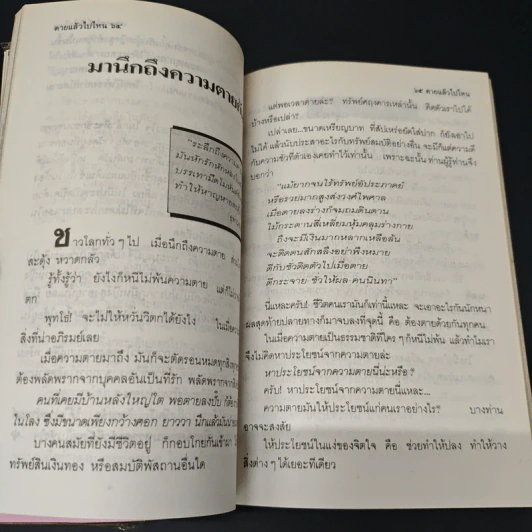 ตายแล้วไปไหน ๖๔
มานึกถึงความตาย
"ระลึกถึงความ
มันหักรักหักหลง
บรรเทามืดโมหันธ์
ทำให้หาญหาย
ชาวโลกทั่ว ๆ ไป เมื่อนึกถึงความตาย
สะดุ้ง หวาดกลัว
รู้ทั้งรู้ว่า ยังไงก็หนีไม่พ้นความตาย แต่ก็
ตก
พุทโธ่! จะไม่ให้หวั่นวิตกได้ยังไง ในเมื่อความ
สิ่งที่น่าอภิรมย์เลย
เมื่อความตายมาถึง มันก็จะตัดรอนหมดทุกสิ่งทุก
ต้องพลัดพรากจากบุคคลอันเป็นที่รัก พลัดพราก
คนที่เคยมีบ้านหลังใหญ่โต พอตายลงปั๊บ ก็ต้อง
ในโลง ซึ่งมีขนาดเพียงกว้างศอก ยาววา นึกแล้วมัน
บางคนสมัยที่ยังมีชีวิตอยู่ ก็กอบโกยกันเข้ามา
ทรัพย์สินเงินทอง หรือสมบัติพัสถานอื่นใด
๖๕ ตายแล้วไปไหน
แต่พอเวลาตายล่ะ? ทรัพย์ศฤงคารเหล่านั้น ติดตัวเราไปได้
บ้างหรือเปล่า?
เปล่าเลย...ขนาดเหรียญบาท ที่สัปเหร่อยัดใส่ปาก ก็ยังเอาไป
ไม่ได้ แล้วนับประสาอะไรกับทรัพย์สมบัติอย่างอื่น จะมีก็แต่ความดี
กับความชั่วที่ตัวเองเคยทำไว้เท่านั้น เพราะฉะนั้น ท่านผู้รู้ท่านจึง
บอกว่า
"แม้ยากจนไร้ทรัพย์อัประภาคย์
หรือรวยมากสูงส่งวงศ์ไพศาล
เมื่อตายลงร่างก็จมถมดินดาน
ไม้กระดานสี่เหลี่ยมหุ้มคลุมร่างกาย
ถึงจะมีเงินมากหลากเหลือล้น
จะติดตนสักสลึงอย่าพึงหมาย
ดีกับชั่วติดตัวไปเมื่อตาย
ดีกระจาย ชั่วให้ผล คนนินทา"
นี่แหละครับ! ชีวิตคนเรามันก็เท่านี้แหละ จะเอาอะไรกันนักหนา
ผลสุดท้ายปลายทางก็มาจบลงที่จุดนี้ คือ ต้องตายด้วยกันทุกคน
ในเมื่อความตายเป็นธรรมชาติที่ใคร ๆ ก็หนีไม่พ้น แล้วทำไมเรา
จึงไม่คิดหาประโยชน์จากความตายล่ะ
หาประโยชน์จากความตายนี่น่ะหรือ?
ครับ! หาประโยชน์จากความตายนี่แหละ...
ความตายมันให้ประโยชน์แก่คนเราอย่างไร? บางท่าน
อาจจะสงสัย
ให้ประโยชน์ในแง่ของจิตใจ คือ ช่วยทำให้ปลง ทำให้วาง
สิ่งต่าง ๆ ได้เยอะทีเดียว